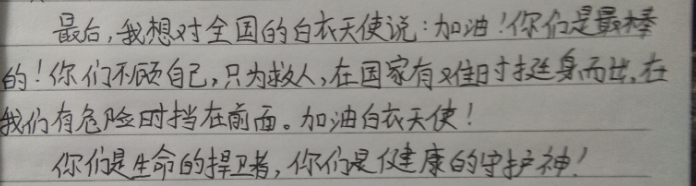 最后,我想对全国的白衣天使说:加油!你们是最棒
的!你们不顾自己,只为救人,在国家有难时挺身而出,在
我们有危险时挡在前面。加油白衣天使!
你们是生命的捍卫者,你们是健康的守护神!